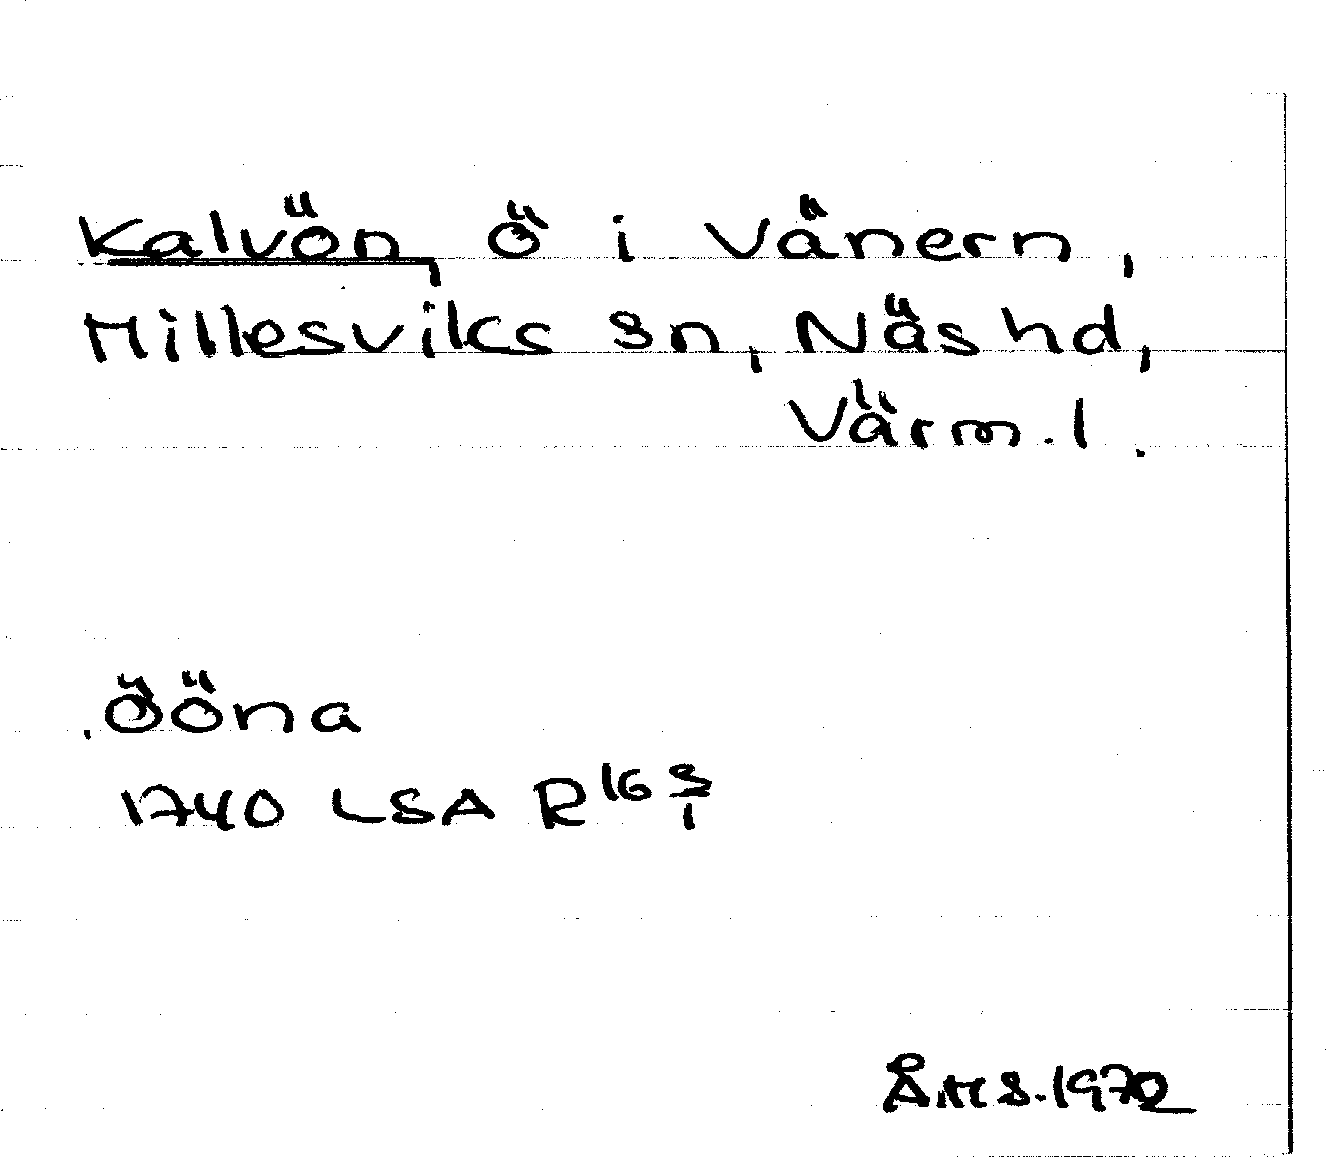 Kalvön, ö i Vänern,
Millesviks sn, Näs hd,
Värm. l.
Ööna
1740 LSA R16 3/1
Å.M.S. 1972